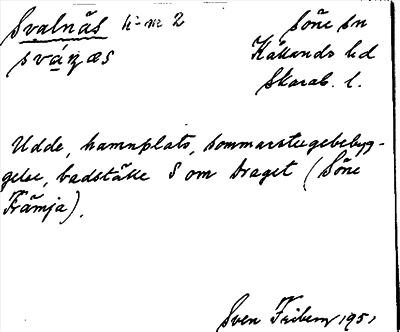 Svalnäs h-nr 2
svá̱ꞥæs
Söne sn
Kållands hd
Skarab. l.
Udde, hamnplats, sommarstugebebyg-
gelse, badställe S om Draget (Söne
Främja).
Sven Friberg 1951